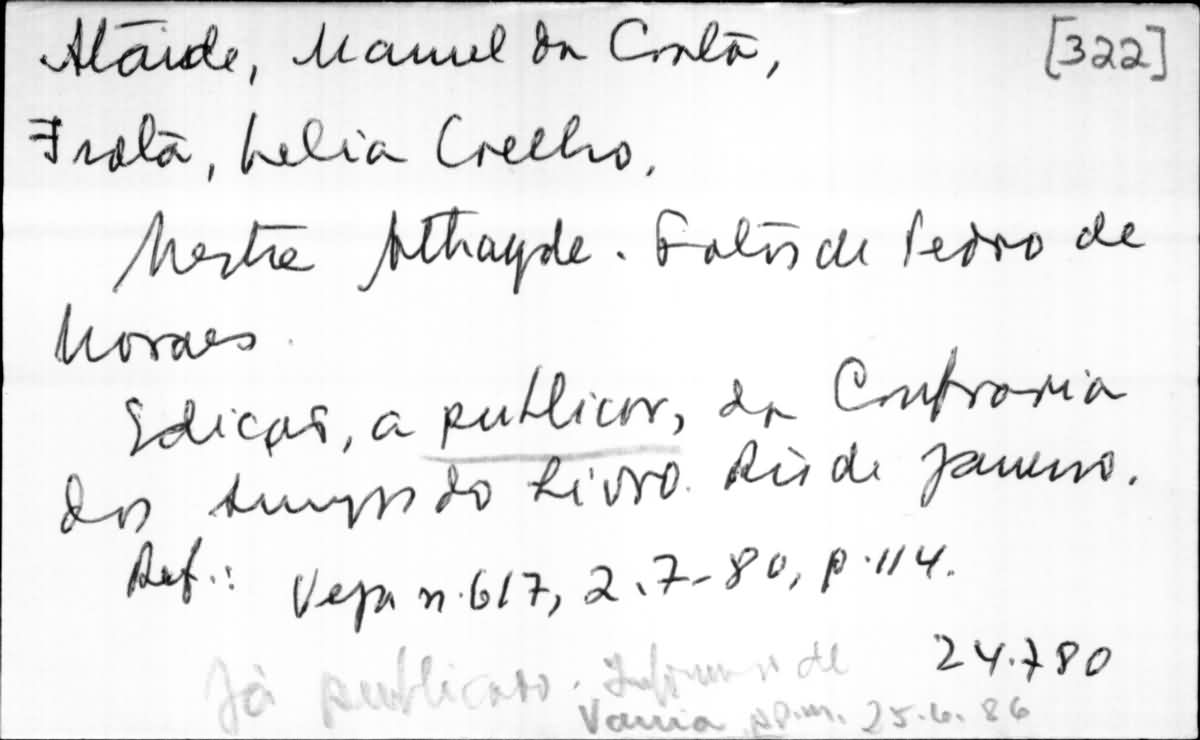 Ataide, Manuel da Costa, [322]
Frota, Lelia Coelho.
Mestre Athayde. Fotos de Pedro de
Moraes.
Edição, a publicar, da Confraria
dos Amigos do Livro. Rio de Janeiro.
Ref.: Veja n. 617, 2.7-80, p. 114.
24.780
Já publicado. Informação de
Vania 25.6.86